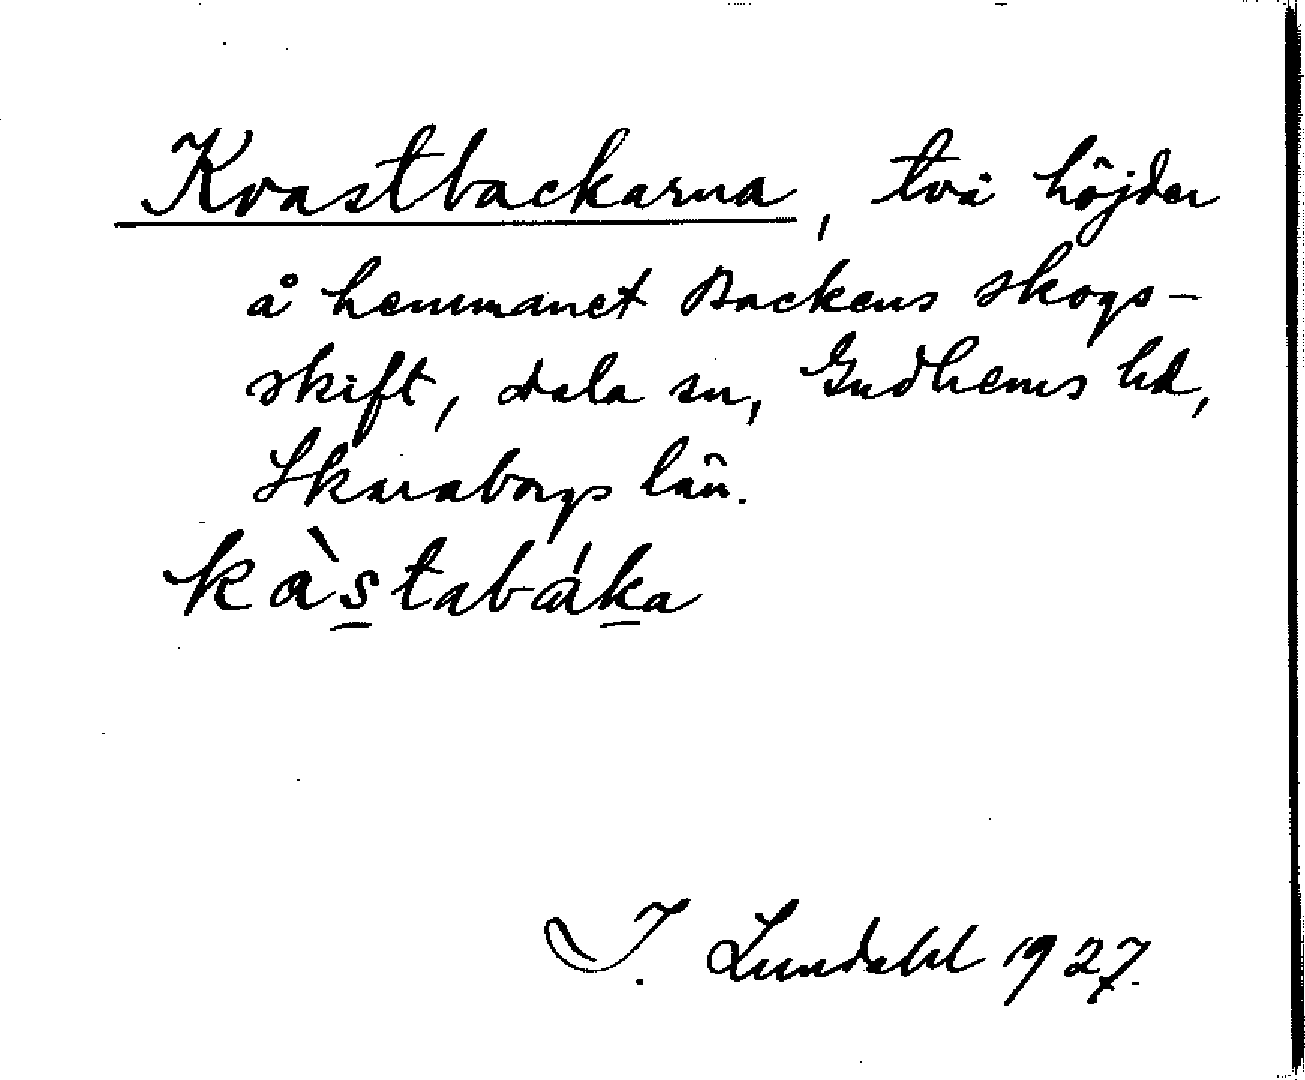 Kvastbackarna, två höjder
å hemmanet Backens skogs-
skift, Dala sn, Gudhems hd,
Skaraborgs län.
kàs̱tabáḵa
I. Lundahl 1927.